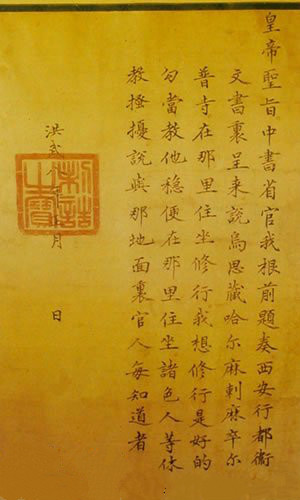 皇帝聖旨中書省官我根前題奏西安行都衛
文書裏呈来說烏思藏哈尔麻剌麻卒尔
普寺在那里住坐修行我想修行是好的
勾當教他穩便在那里住坐諸色人等休
教搔擾說與那地面裏官人每知道者
洪武 月 日
制誥
之寶